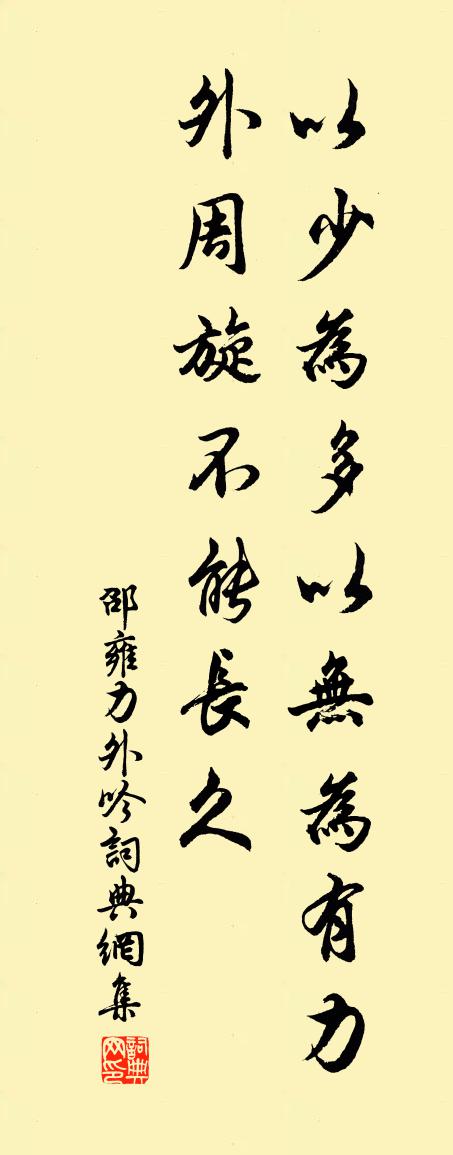 以少為多以無為有力
外周旋不能長久
邵雍力外吟詞典網集
詞典
网印